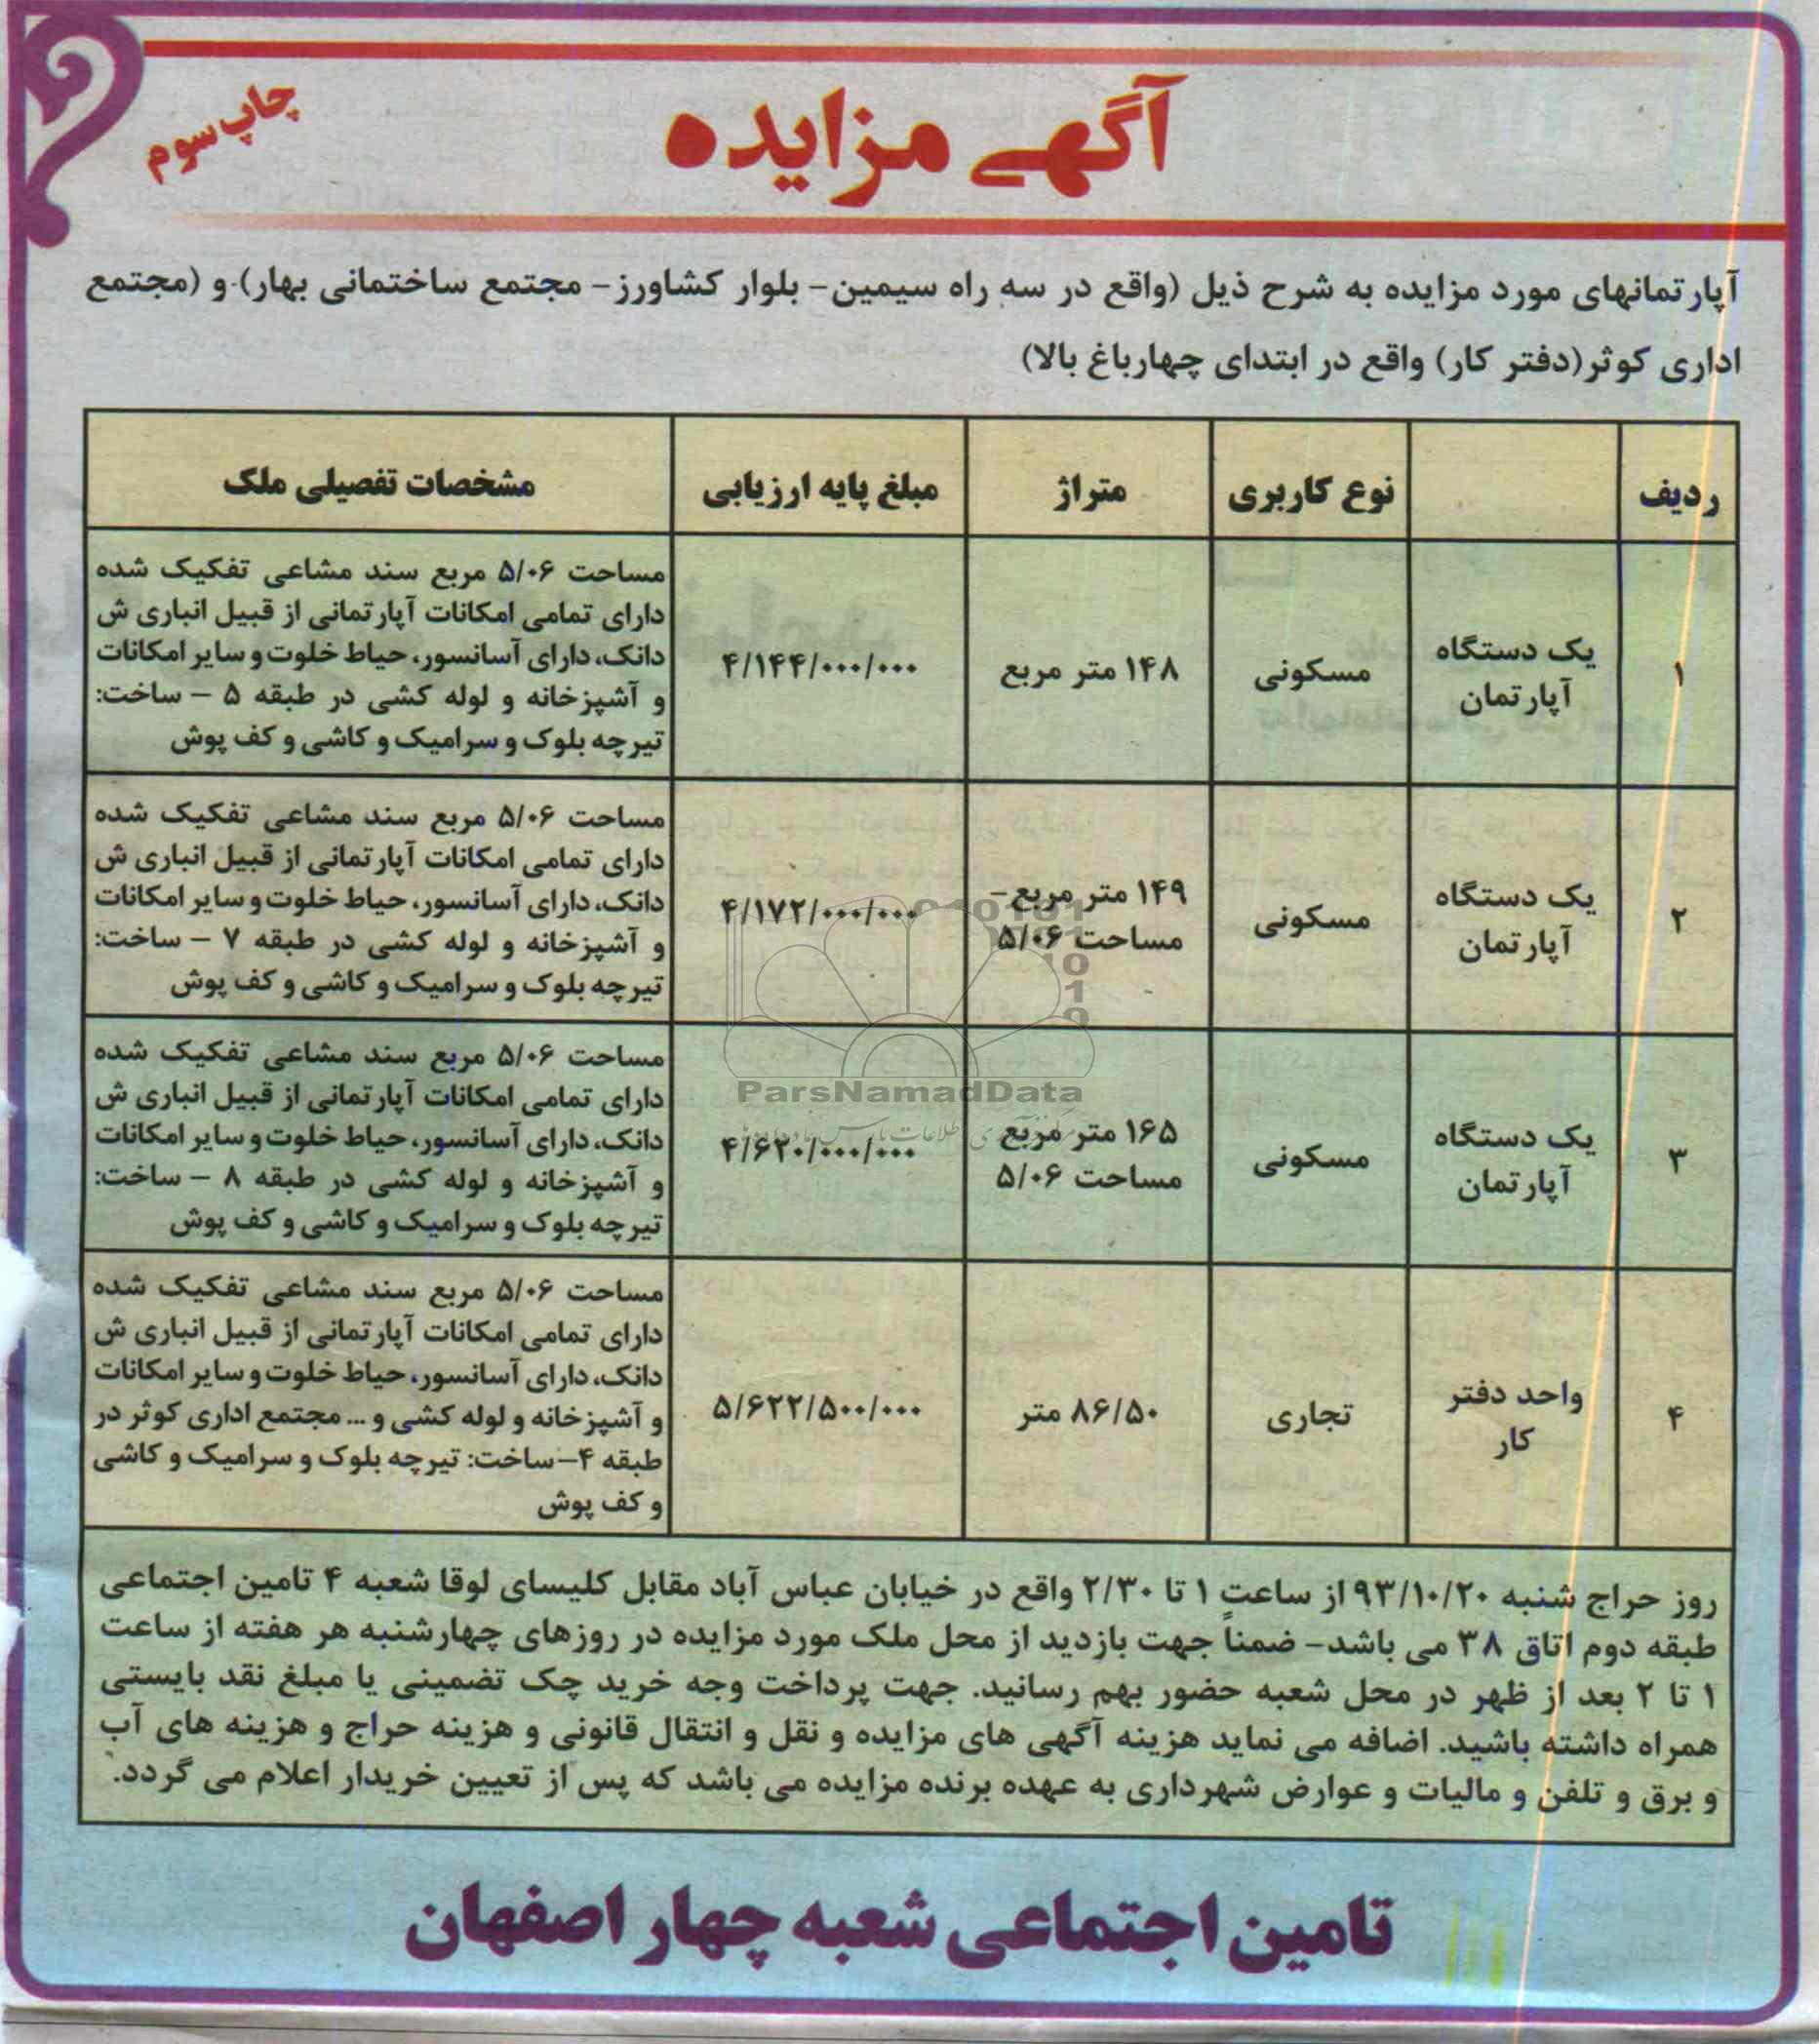 آگهی مزایده
چاپ سوم
آپارتمانهای مورد مزایده به شرح ذیل (واقع در سه راه سیمین- بلوار کشاورز- مجتمع ساختمانی بهار) و (مجتمع
اداری کوثر(دفتر کار) واقع در ابتدای چهارباغ بالا)
ردیف
نوع کاربری
متراژ
مبلغ پایه ارزیابی
مشخصات تفصیلی ملک
۱
یک دستگاه
آپارتمان
مسکونی
۱۴۸ متر مربع
۴/۱۴۴/۰۰۰/۰۰۰
مساحت ۵/۰۶ مربع سند مشاعی تفکیک شده
دارای تمامی امکانات آپارتمانی از قبیل انباری ش
دانک، دارای آسانسور، حیاط خلوت و سایر امکانات
و آشپزخانه و لوله کشی در طبقه ۵ – ساخت:
تیرچه بلوک و سرامیک و کاشی و کف پوش
۲
یک دستگاه
آپارتمان
مسکونی
۱۴۹ متر مربع-
مساحت ۵/۰۶
۴/۱۷۲/۰۰۰/۰۰۰
مساحت ۵/۰۶ مربع سند مشاعی تفکیک شده
دارای تمامی امکانات آپارتمانی از قبیل انباری ش
دانک، دارای آسانسور، حیاط خلوت و سایر امکانات
و آشپزخانه و لوله کشی در طبقه ۷ – ساخت:
تیرچه بلوک و سرامیک و کاشی و کف پوش
۳
یک دستگاه
آپارتمان
مسکونی
۱۶۵ متر مربع
مساحت ۵/۰۶
۴/۶۲۰/۰۰۰/۰۰۰
مساحت ۵/۰۶ مربع سند مشاعی تفکیک شده
دارای تمامی امکانات آپارتمانی از قبیل انباری ش
دانک، دارای آسانسور، حیاط خلوت و سایر امکانات
و آشپزخانه و لوله کشی در طبقه ۸ – ساخت:
تیرچه بلوک و سرامیک و کاشی و کف پوش
۴
واحد دفتر
کار
تجاری
۸۶/۵۰ متر
۵/۶۲۲/۵۰۰/۰۰۰
مساحت ۵/۰۶ مربع سند مشاعی تفکیک شده
دارای تمامی امکانات آپارتمانی از قبیل انباری ش
دانک، دارای آسانسور، حیاط خلوت و سایر امکانات
و آشپزخانه و لوله کشی و ... مجتمع اداری کوثر در
طبقه ۴–ساخت: تیرچه بلوک و سرامیک و کاشی
و کف پوش
روز حراج شنبه ۹۳/۱۰/۲۰ از ساعت ۱ تا ۲/۳۰ واقع در خیابان عباس آباد مقابل کلیسای لوقا شعبه ۴ تامین اجتماعی
طبقه دوم اتاق ۳۸ می باشد- ضمناً جهت بازدید از محل ملک مورد مزایده در روزهای چهارشنبه هر هفته از ساعت
۱ تا ۲ بعد از ظهر در محل شعبه حضور بهم رسانید. جهت پرداخت وجه خرید چک تضمینی یا مبلغ نقد بایستی
همراه داشته باشید. اضافه می نماید هزینه آگهی های مزایده و نقل و انتقال قانونی و هزینه حراج و هزینه های آب
و برق و تلفن و مالیات و عوارض شهرداری به عهده برنده مزایده می باشد که پس از تعیین خریدار اعلام می گردد.
تامین اجتماعی شعبه چهار اصفهان
ParsNamadData